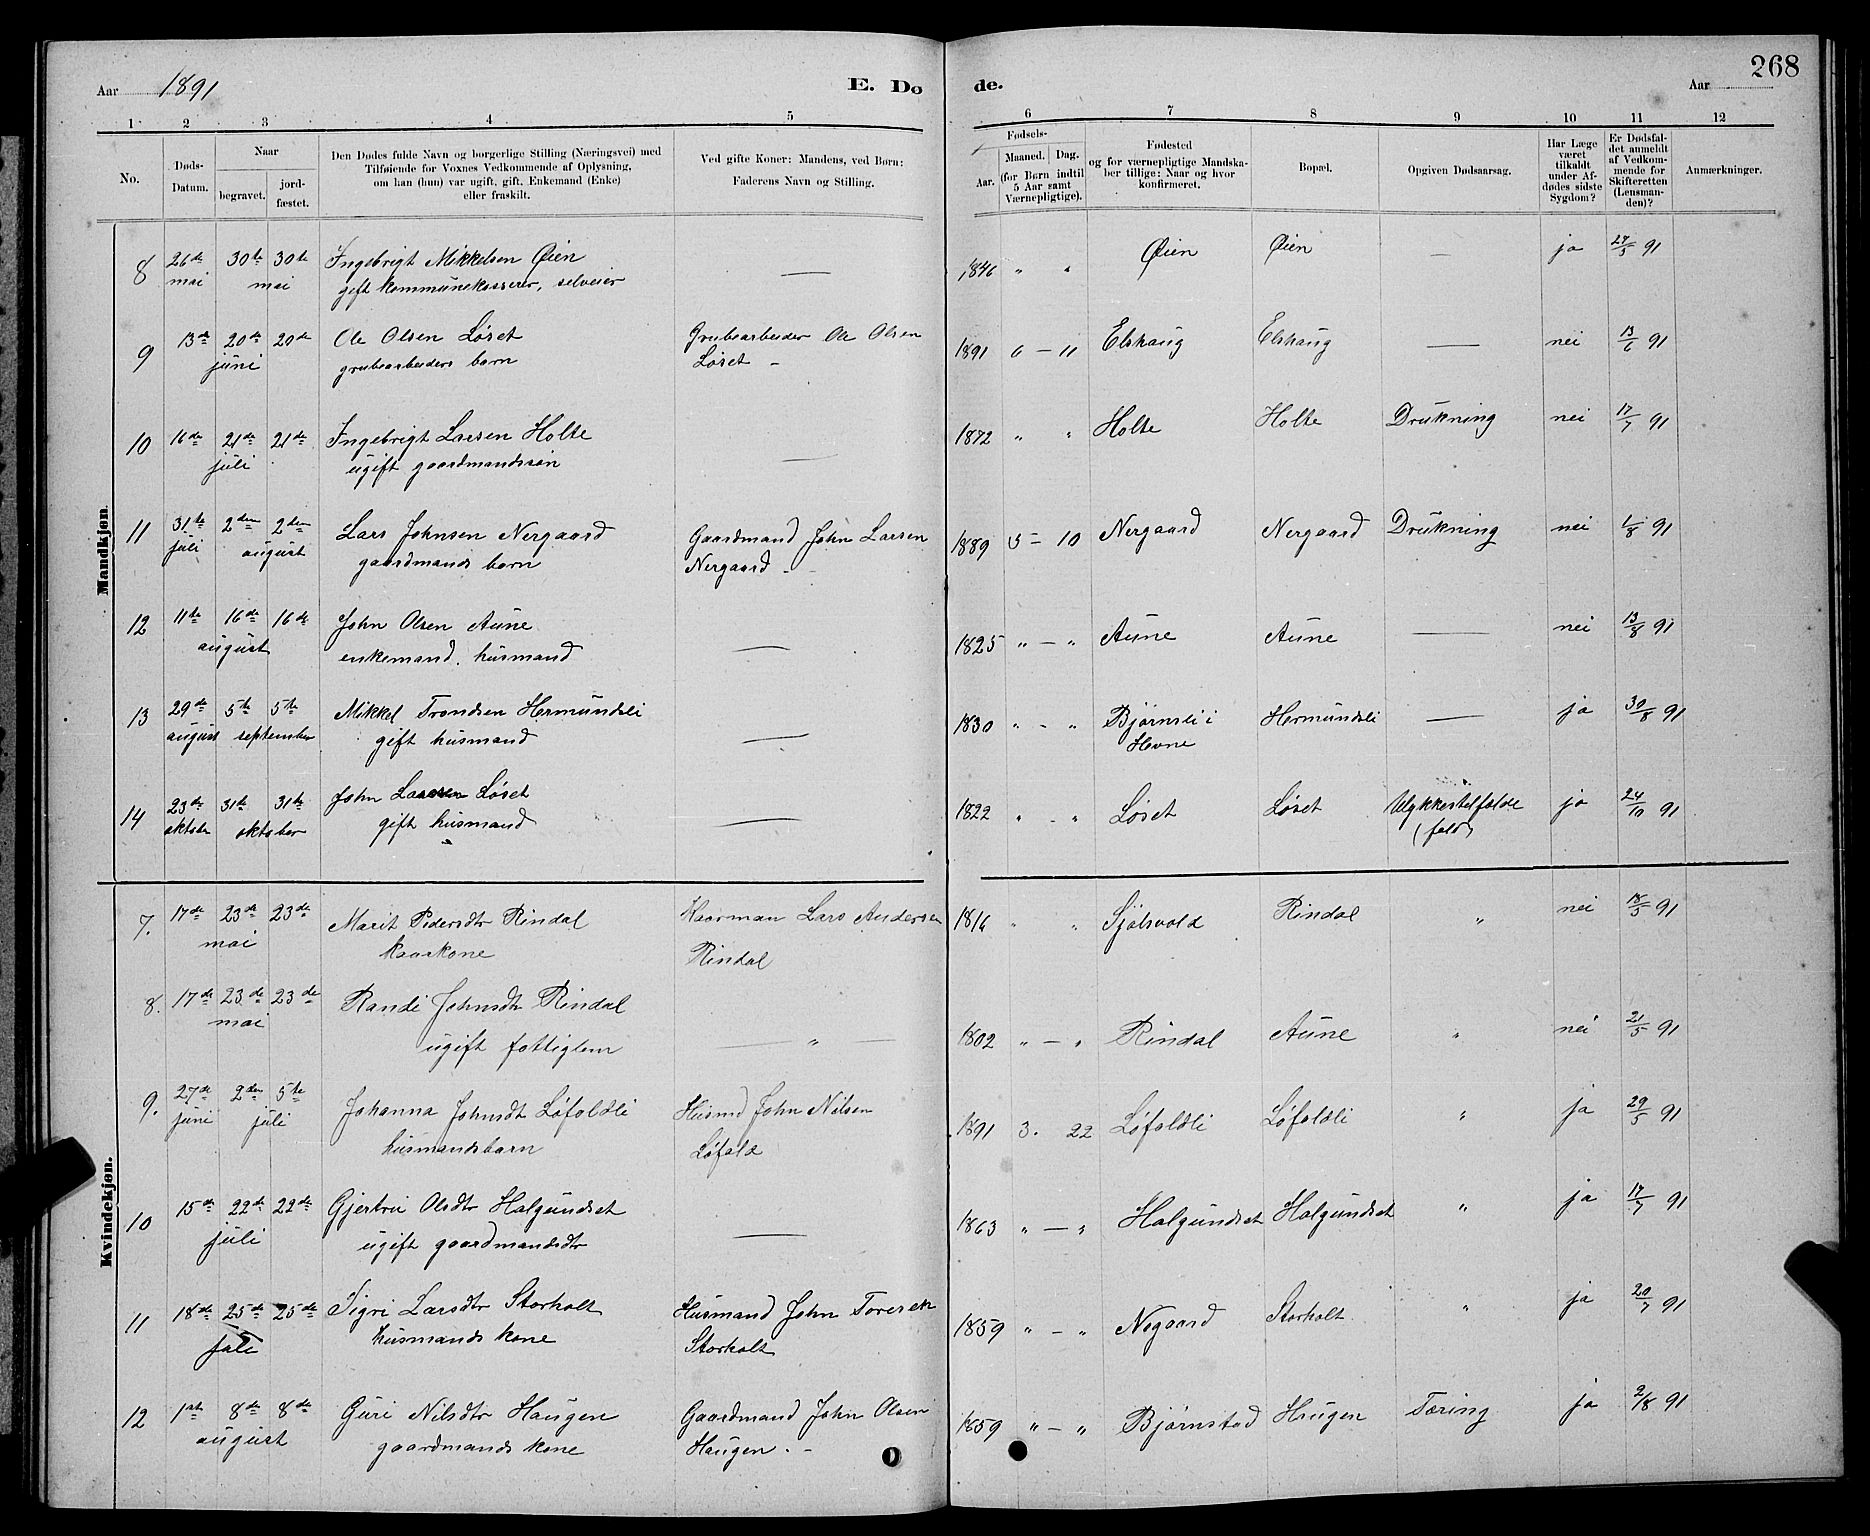 268
Aar 1891 E. Dø de. Aar
1 2 3 4 5 6 7 8 9 10 11 12
No.
Døds-Datum.
Naar
begravet.
jord-fæstet.
Den Dødes fulde Navn og borgerlige Stilling (Næringsvei) med
Tilføiende for Voxnes Vedkommende af Oplysning,
om han (hun) var ugift, gift, Enkemand (Enke)
eller fraskilt.
Ved gifte Koner: Mandens, ved Børn:
Faderens Navn og Stilling.
Fødsels-
Aar. Maaned. Dag.
(for Børn indtil
5 Aar samt
Værnepligtige).
Fødested
og for værnepligtige Mandska-
ber tillige: Naar og hvor
konfirmeret.
Bopæl.
Opgiven Dødsaarsag.
Har Læge
været
tilkaldt
under Af-
dødes sidste
Sygdom?
Er Dødsfal-
det anmeldt
af Vedkom-
mende for
Skifteretten
(Lensman-
den)?
Anmærkninger.
Mandkjøn.
8 26de 30te 30te Ingebrigt Mikkelsen Øien — 1846 " " Øien Øien — ja 27/5 91
mai mai gift kommunekasserer, selveier
9 13de 20de 20de Ole Olsen Løset Grubearbeider Ole Olsen 1891 6 — 11 Elshaug Elshaug — nei 13/6 91
juni grubearbeiders barn Løset –
10 16de 21de 21de Ingebrigt Larsen Holte — 1872 " " Holte Holte Drukning nei 17/7 91
juli ugift gaardmandssøn
11 31te 2den 2den Lars Johnsen Nergaard Gaardmand John Larsen 1889 5 – 10 Nergaard Nergaard Drukning nei 1/8 91
juli august gaardmands barn Nergaard –
12 11te 16de 16de John Olsen Aune — 1825 " — " Aune Aune — nei 13/8 91
august enkemand. husmand
13 29de 5te 5te Mikkel Trondsen Hermundsli — 1830 " - " Bjørnsli i Hermundsli — ja 30/8 91
august september gift husmand Hevne
14 23de 31te 31te John Larsen Løset — 1822 " - " Løset Løset Ulykkestilfælde ja 24/10 91
oktober oktober gift husmand (fald)
Kvindekjøn.
7. 17de 23de 23de Marit Pedersdtr Rindal Kaarman Lars Andersen 1816 " " Sjølsvold Rindal " nei 18/5 91
mai kaarkone Rindal
8. 17de 23de 23de Randi Johnsdtr Rindal — " — 1802 " — " Rindal Aune " nei 21/5 91
mai ugift fattiglem
9. 27de 2den 5te Johanna Johnsdt Løfaldli Husmd John Nilsen 1891 3. 22 Løfaldli Løfaldli " ja 29/5 91
juni juli husmandsbarn Løfald
10 15de 22de 22de Gjertru Olsdtr Halgundset — 1863 " — " Halgundset Halgundset " ja 17/7 91
juli ugift gaardmandsdtr
11 18de 25de 25de Sigri Larsdtr Storholt Husmand John Toresen 1859 " — " Negaard Storholt " ja 20/7 91
juli husmands kone Storholt
12 1ste 8de 8de Guri Nilsdtr Haugen Gaardmand John Olsen 1859 " — " Bjørnstad Haugen Tæring ja 2/8 91
august gaardmands kone Haugen. –